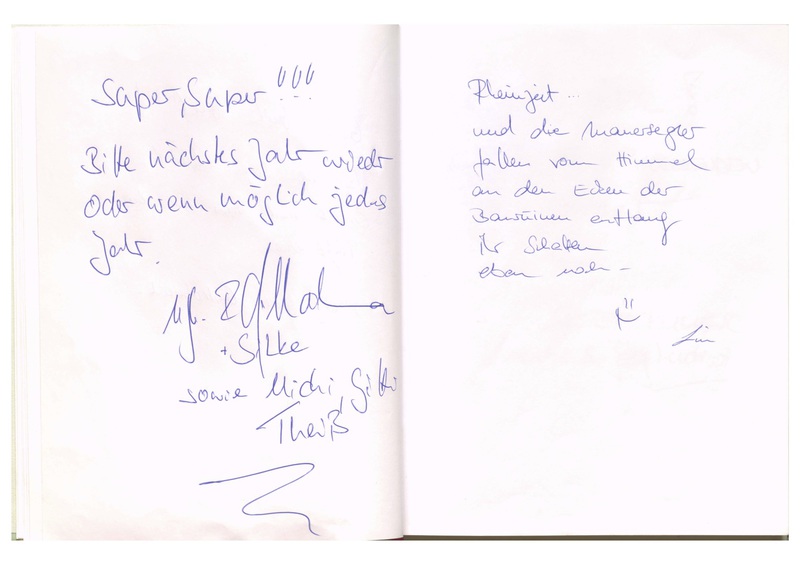 Super, Super !!!
Bitte nächstes Jahr wieder
Oder wenn möglich jedes
Jahr.
+ Silke
sowie Michi, Gitti
Theiß
Rheinzeit ...
und die Mauersegler
fallen vom Himmel
an den Ecken der
Bauruinen entlang
ihr Schatten
eben noch –